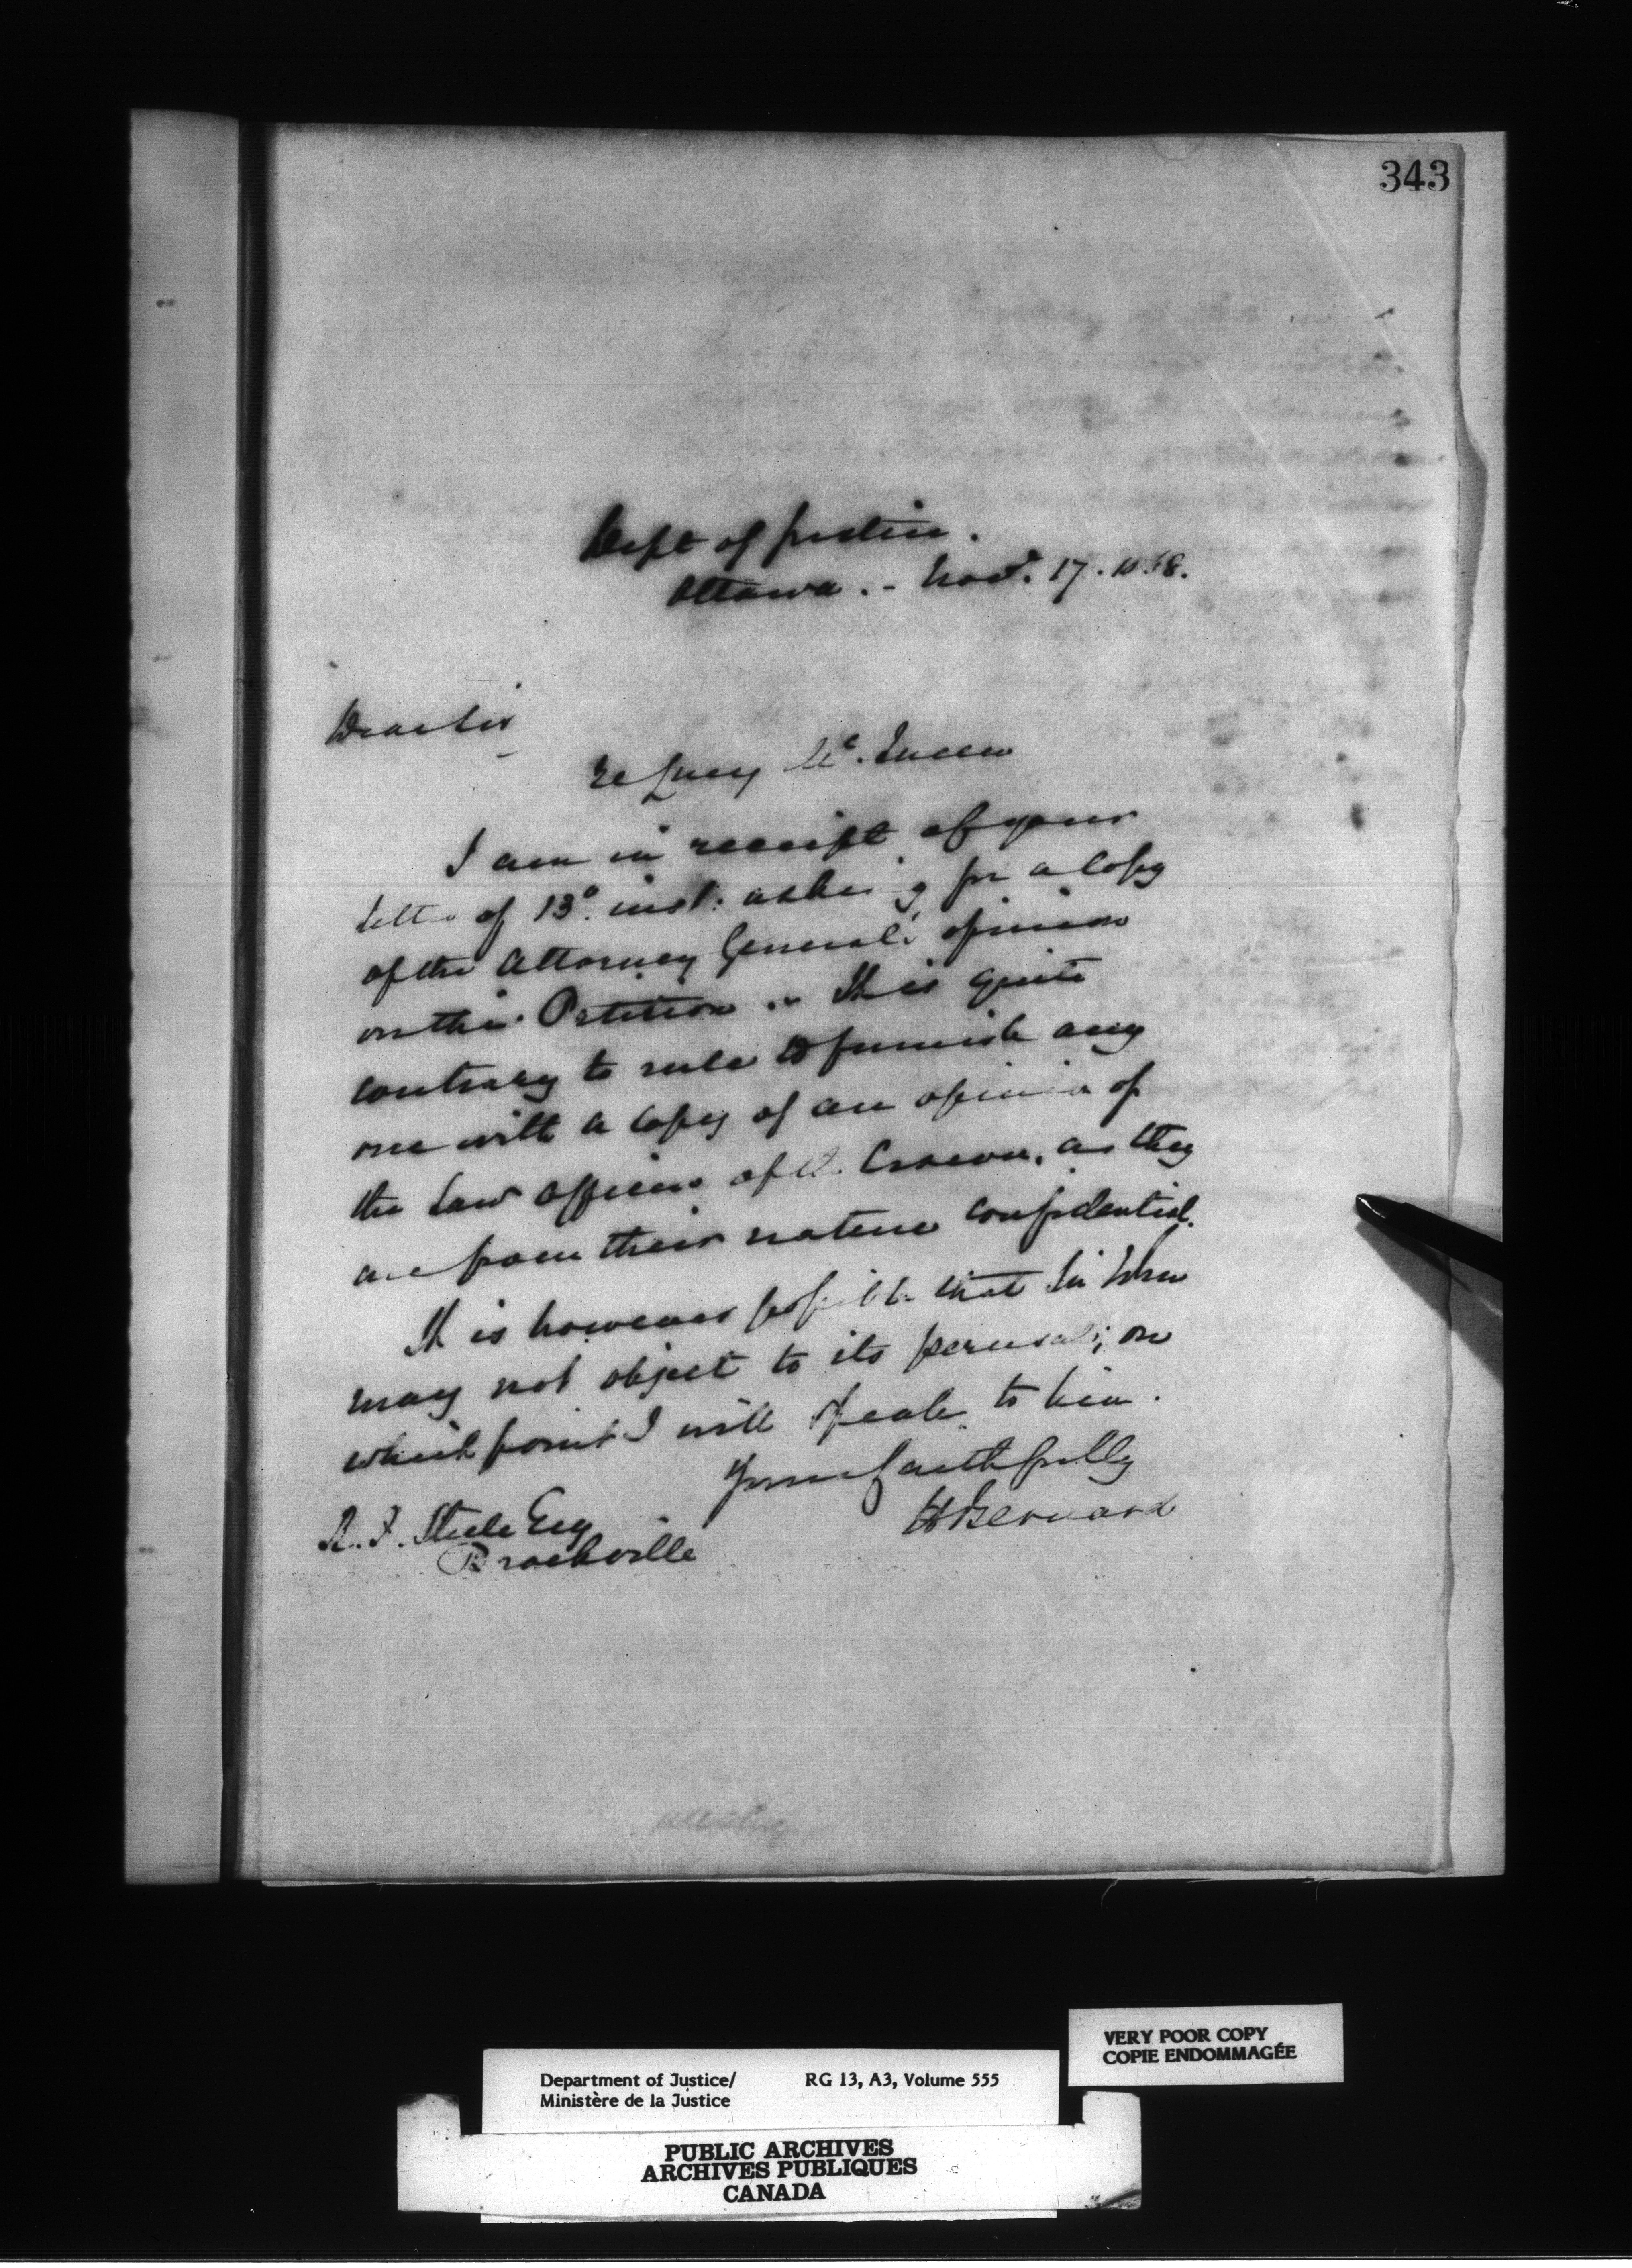 343
Dept of Justice.
Ottawa. - Novr. 17. 1868.
Dear Sir
re Lucy Mc.Queen
I am in receipt of your
letter of 13o. inst: asking for a Copy
of the Attorney General's opinion
on this Petition .- It is quite
contrary to rule to furnish any
one with a Copy of an opinion of
the Law Officers of the Crown, as they
are from their nature confidential.
It is however possible that Sir John
may not object to its perusal; on
which point I will speak to him.
Yours faithfully
H Bernard
R. F. Steele Esq
Brockville
VERY POOR COPY
COPIE ENDOMMAGÉE
Department of Justice/ RG 13, A3, Volume 555
Ministère de la Justice
PUBLIC ARCHIVES
ARCHIVES PUBLIQUES
CANADA